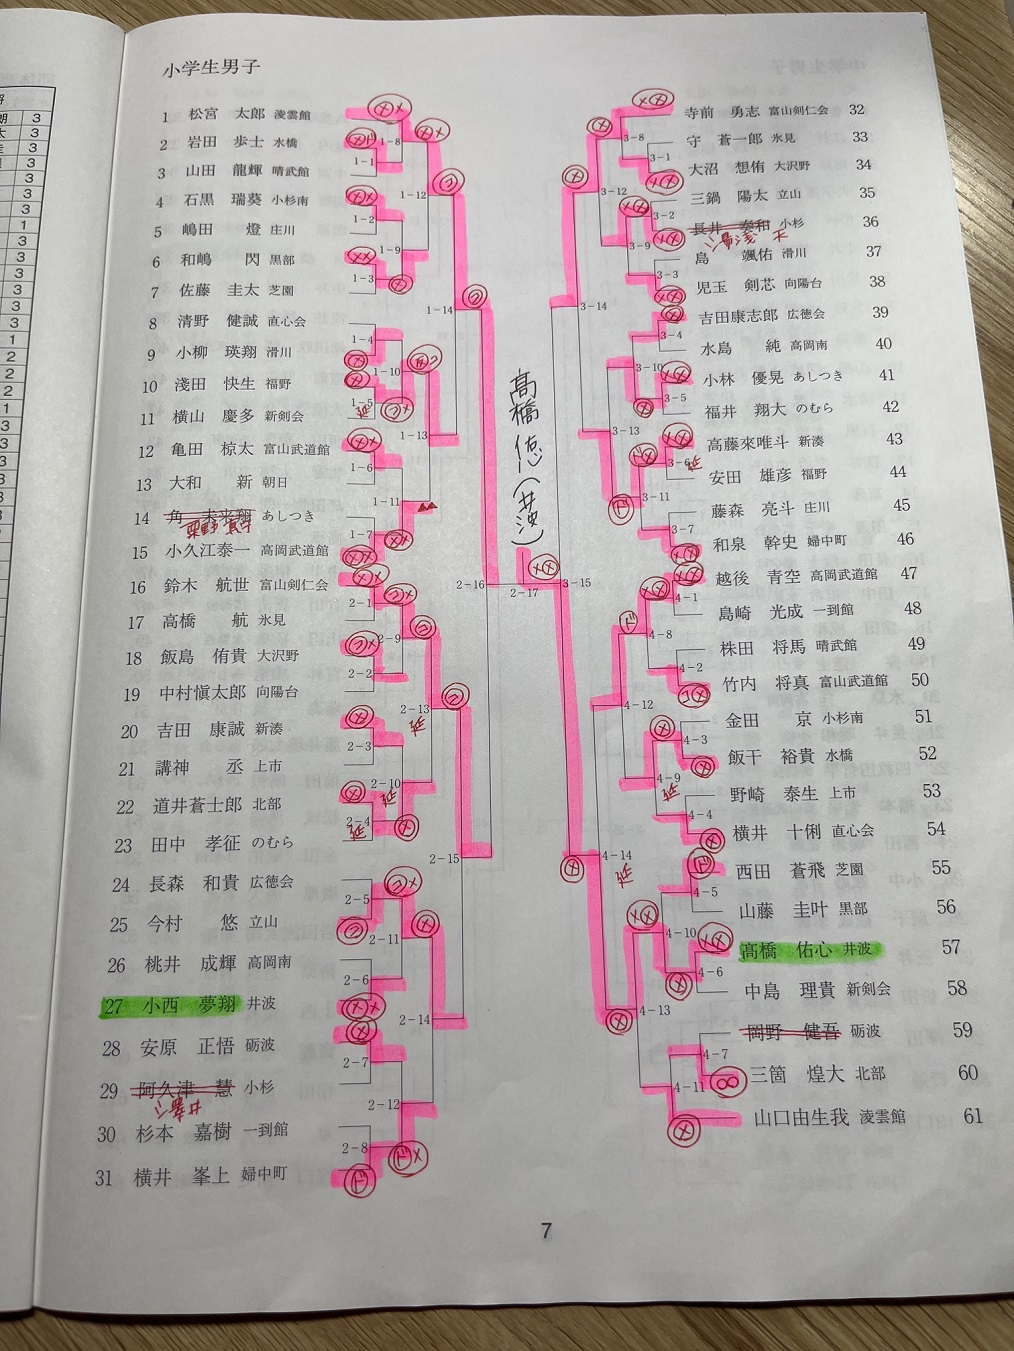 小学生男子
1 松宮 太郎 凌雲館
2 岩田 歩士 水橋
3 山田 龍輝 晴武館
4 石黒 瑞葵 小杉南
5 嶋田 燈 庄川
6 和嶋 閃 黒部
7 佐藤 圭太 芝園
8 清野 健誠 直心会
9 小柳 瑛翔 滑川
10 淺田 快生 福野
11 横山 慶多 新剣会
12 亀田 椋太 富山武道館
13 大和 新 朝日
14 角 未来翔 あしつき
15 小久江泰一 高岡武道館
16 鈴木 航世 富山剣仁会
17 高橋 航 氷見
18 飯島 侑貴 大沢野
19 中村愼太郎 向陽台
20 吉田 康誠 新湊
21 講神 丞 上市
22 道井蒼士郎 北部
23 田中 孝征 のむら
24 長森 和貴 広徳会
25 今村 悠 立山
26 桃井 成輝 高岡南
27 小西 夢翔 井波
28 安原 正悟 砺波
29 阿久津 慧 小杉
30 杉本 嘉樹 一到館
31 横井 峯上 婦中町
1-1
1-2
1-3
1-4
1-5
1-6
1-7
1-8
1-9
1-10
1-11
1-12
1-13
1-14
2-1
2-2
2-3
2-4
2-5
2-6
2-7
2-8
2-9
2-10
2-11
2-12
2-13
2-14
2-15
2-16
2-17
髙橋 佑心(井波)
3-15
3-14
3-13
3-12
3-11
3-10
3-9
3-8
3-7
3-6
3-5
3-4
3-3
3-2
3-1
4-14
4-13
4-12
4-11
4-10
4-9
4-8
4-7
4-6
4-5
4-4
4-3
4-2
4-1
寺前 勇志 富山剣仁会 32
守 蒼一郎 氷見 33
大沼 想侑 大沢野 34
三鍋 陽太 立山 35
長井 泰和 小杉 36
島 颯佑 滑川 37
児玉 剣芯 向陽台 38
吉田康志郎 広徳会 39
水島 純 高岡南 40
小林 優晃 あしつき 41
福井 翔大 のむら 42
高藤來唯斗 新湊 43
安田 雄彦 福野 44
藤森 亮斗 庄川 45
和泉 幹史 婦中町 46
越後 青空 高岡武道館 47
島崎 光成 一到館 48
株田 将馬 晴武館 49
竹内 将真 富山武道館 50
金田 京 小杉南 51
飯干 裕貴 水橋 52
野崎 泰生 上市 53
横井 十俐 直心会 54
西田 蒼飛 芝園 55
山藤 圭叶 黒部 56
髙橋 佑心 井波 57
中島 理貴 新剣会 58
岡野 健吾 砺波 59
三箇 煌大 北部 60
山口由生我 凌雲館 61
7